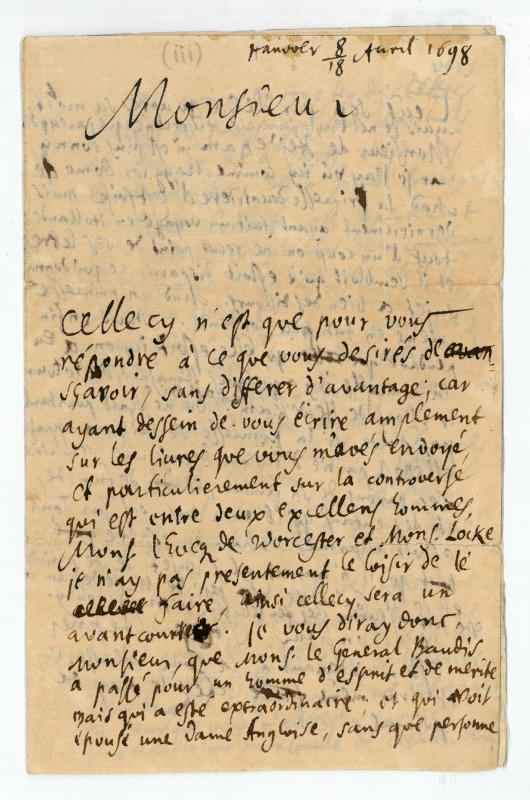 Hanover 8/18 Avril 1698
Monsieur
Cellecy n'est que pour vous
répondre à ce que vous desirés de
sçavoir, sans differer d'avantage; car
ayant dessein de vous écrire amplement
sur les livres que vous m'avés envoyé,
et particulierement sur la controverse
qui est entre deux excellens hommes,
Mons. l'Eveq. de Worcester et Mons. Locke
je n'ay pas presentement le loisir de le
faire, ainsi cellecy sera un
avantcourier. je vous diray donc,
Monsieur, que Mons. le General Baudis
a passé pour un homme d'esprit et de merite
mais qui a esté extraordinaire; et qui avoit
épousé une Dame Angloise, sans que personne